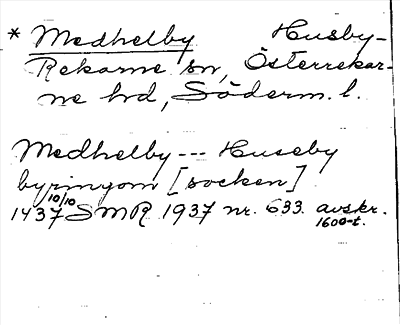 * Medhelby Husby-
Rekarne sn, Österrekar-
ne hd, Söderm. l.
Medhelby --- Huseby
byringom [socken]
1437 10/10 SMR 1937 nr. 633. avskr.
1600-t.